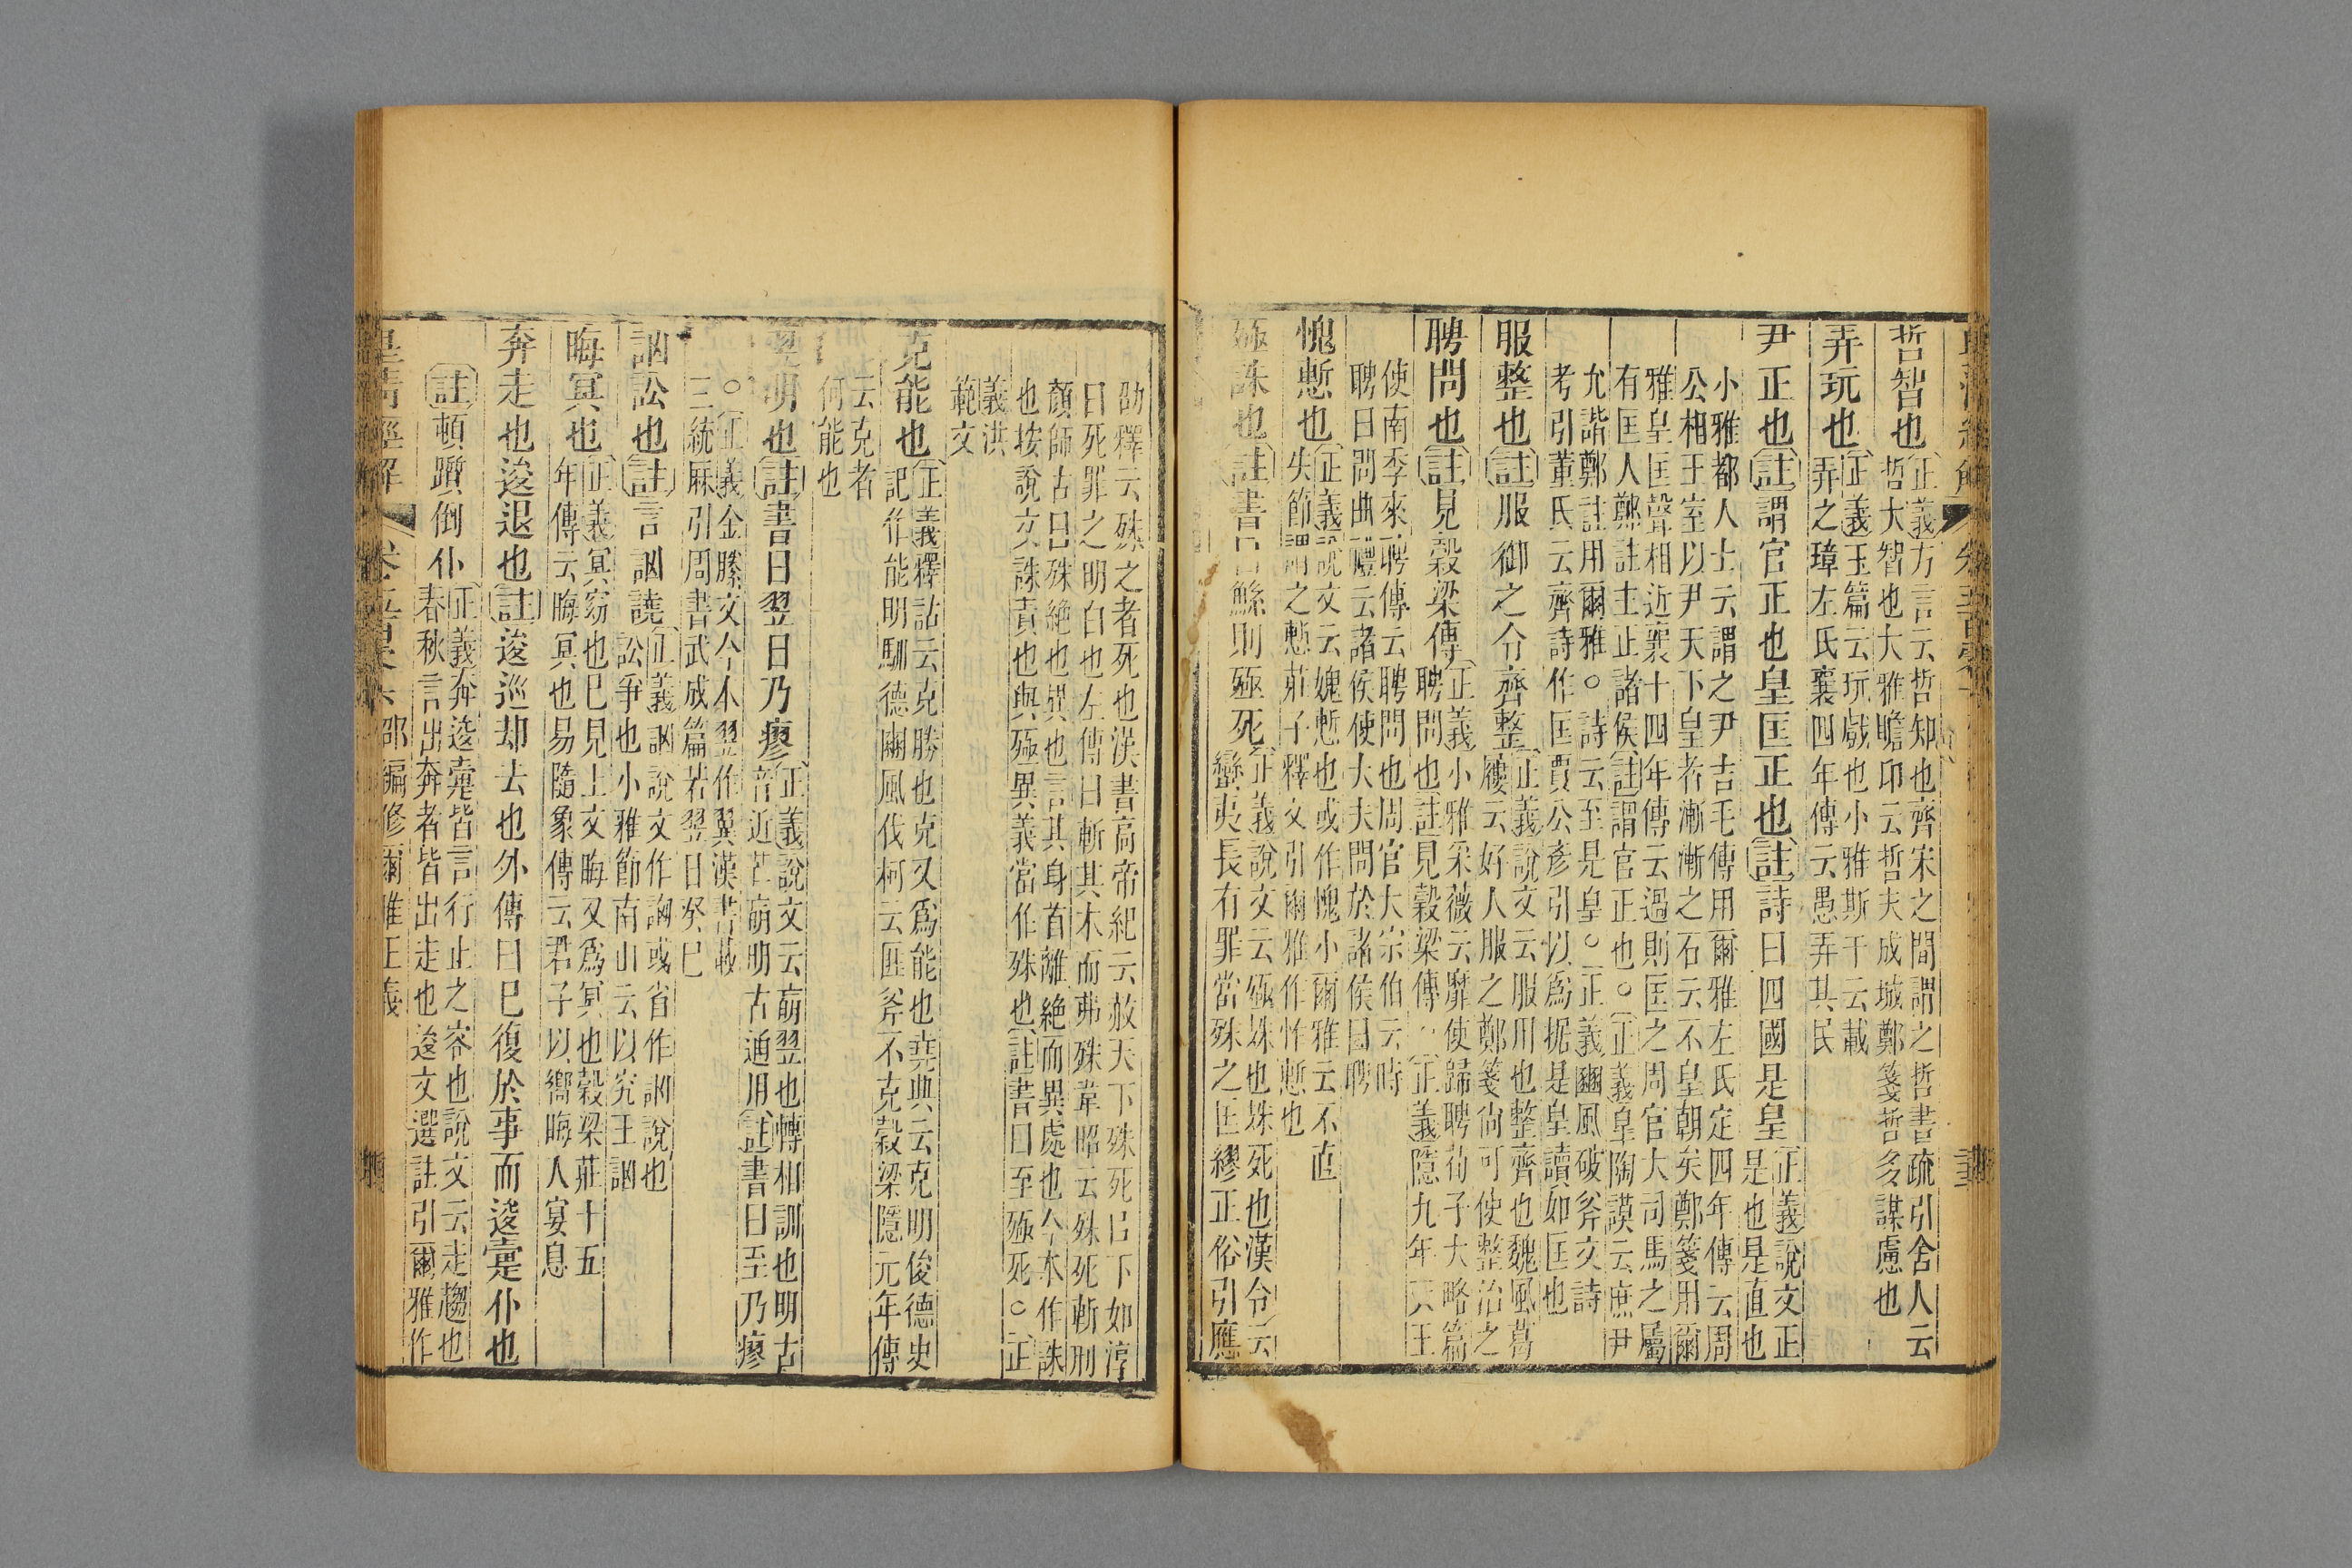 哲智也 正義方言云哲知也齊宋之間謂之哲書疏引舍人云
哲大智也大雅瞻卬云哲夫成城鄭箋哲多謀慮也
弄玩也 正義玉篇云玩戲也小雅斯干云載
弄之璋左氏襄四年傳云愚弄其民
尹正也 註謂官正也皇匡正也 註詩曰四國是皇 正義說文正
是也是直也
小雅都人士云謂之尹吉毛傳用爾雅左氏定四年傳云周
公相王室以尹天下皇者漸漸之石云不皇朝矣鄭箋用爾
雅皇匡聲相近襄十四年傳云過則匡之周官大司馬之屬
有匡人鄭註主正諸侯 註謂官正也○正義皐陶謨云庶尹
允諧鄭註用爾雅○詩云至是皇○正義豳風破斧文詩
考引董氏云齊詩作匡賈公彥引以爲据是皇讀如匡也
服整也 註服御之令齊整 正義說文云服用也整齊也魏風葛
屨云好人服之鄭箋尙可使整治之
聘問也 註見穀梁傳 正義小雅采薇云靡使歸聘荀子大略篇
聘問也 註見穀梁傳○正義隱九年天王
使南季來聘傳云聘問也周官大宗伯云時
聘曰問曲禮云諸侯使大夫問於諸侯曰聘
愧慙也 正義說文云媿慙也或作愧小爾雅云不直
失節謂之慙莊子釋文引爾雅作怍慙也
殛誅也 註書曰鯀則殛死 正義說文云殛殊也殊死也漢令云
蠻夷長有罪當殊之匡繆正俗引應
劭釋云殊之者死也漢書高帝紀云赦天下殊死臣下如淳
曰死罪之明白也左傳曰斬其木而弗殊韋昭云殊死斬刑
顏師古曰殊絶也異也言其身首離絶而異處也今本作誅
也按說文誅責也與殛異義當作殊也 註書曰至殛死○正
義洪
範文
克能也 正義釋詁云克勝也克又爲能也堯典云克明俊德史
記作能明馴德豳風伐柯云匪斧不克穀梁隱元年傳
云克者
何能也
翌明也 註書曰翌日乃瘳 正義說文云昱翌也轉相訓也明古
音近芒昱明古通用 註書曰至乃瘳
○正義金縢文今本翌作翼漢書載
三統厤引周書武成篇若翌日癸巳
訩訟也 註言訩譊 正義訩說文作詾或省作訩說也
訟爭也小雅節南山云以究王訩
晦冥也 正義冥窈也已見上文晦又爲冥也穀梁莊十五
年傳云晦冥也易隨象傳云君子以嚮晦入宴息
奔走也逡退也 註逡巡却去也外傳曰已復於事而逡疐仆也
註頓躓倒仆 正義奔逡疐皆言行止之容也說文云走趨也
春秋言出奔者皆出走也逡文選註引爾雅作
皇清經解 卷五百 六 邵編修爾雅正義